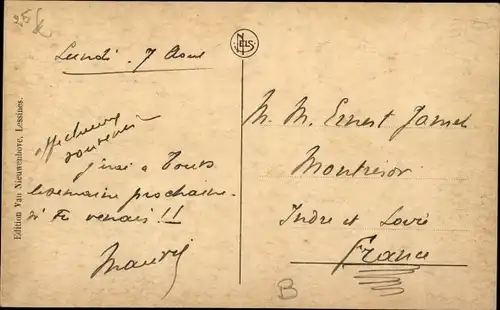 Lundi 7 Aout
affectueux
souvenir
J'irai a Tours
la semaine prochaine
si tu venais !!
M. M. Ernest
Montrésor
Indre et Loire
France
B
NELS
Edition Van Nieuwenhove, Lessines.